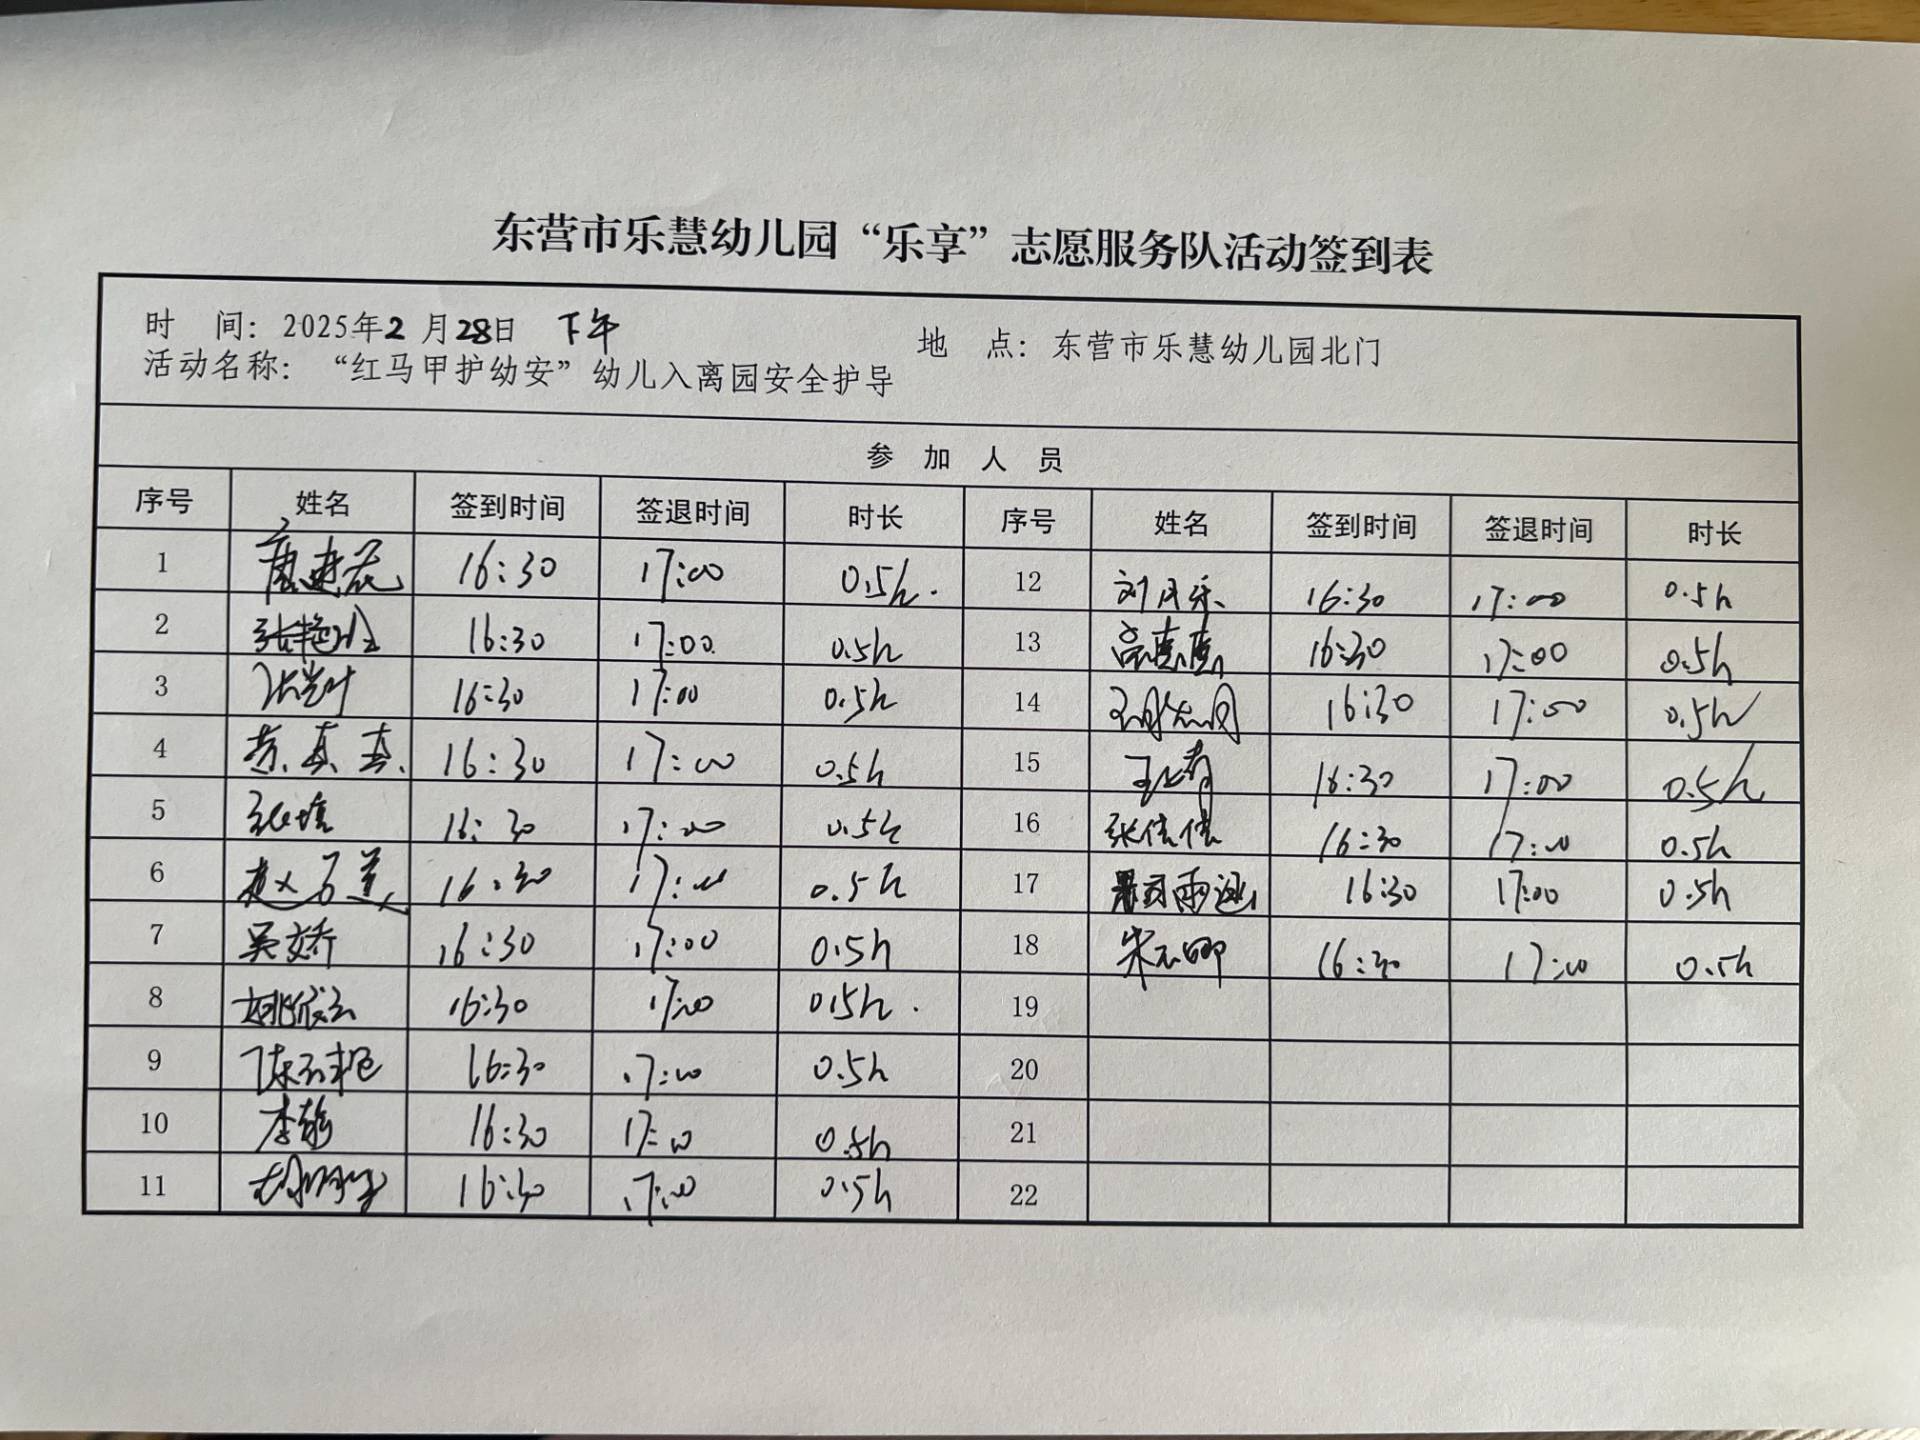 东营市乐慧幼儿园“乐享”志愿服务队活动签到表
时 间：2025年2月28日 下午 地 点：东营市乐慧幼儿园北门
活动名称：“红马甲护幼安”幼儿入离园安全护导
参 加 人 员
序号 姓名 签到时间 签退时间 时长 序号 姓名 签到时间 签退时间 时长
1 唐建花 16:30 17:00 0.5h. 12 刘月乐 16:30 17:00 0.5h
2 16:30 17:00 0.5h 13 高惠惠 16:30 17:00 0.5h
3 16:30 17:00 0.5h 14 16:30 17:00 0.5h
4 16:30 17:00 0.5h 15 16:30 17:00 0.5h
5 16:30 17:00 0.5h 16 张佳佳 16:30 17:00 0.5h
6 16:30 17:00 0.5h 17 16:30 17:00 0.5h
7 吴文乔 16:30 17:00 0.5h 18 16:30 17:00 0.5h
8 16:30 17:00 0.5h. 19
9 16:30 17:00 0.5h 20
10 16:30 17:00 0.5h 21
11 16:30 17:00 0.5h 22